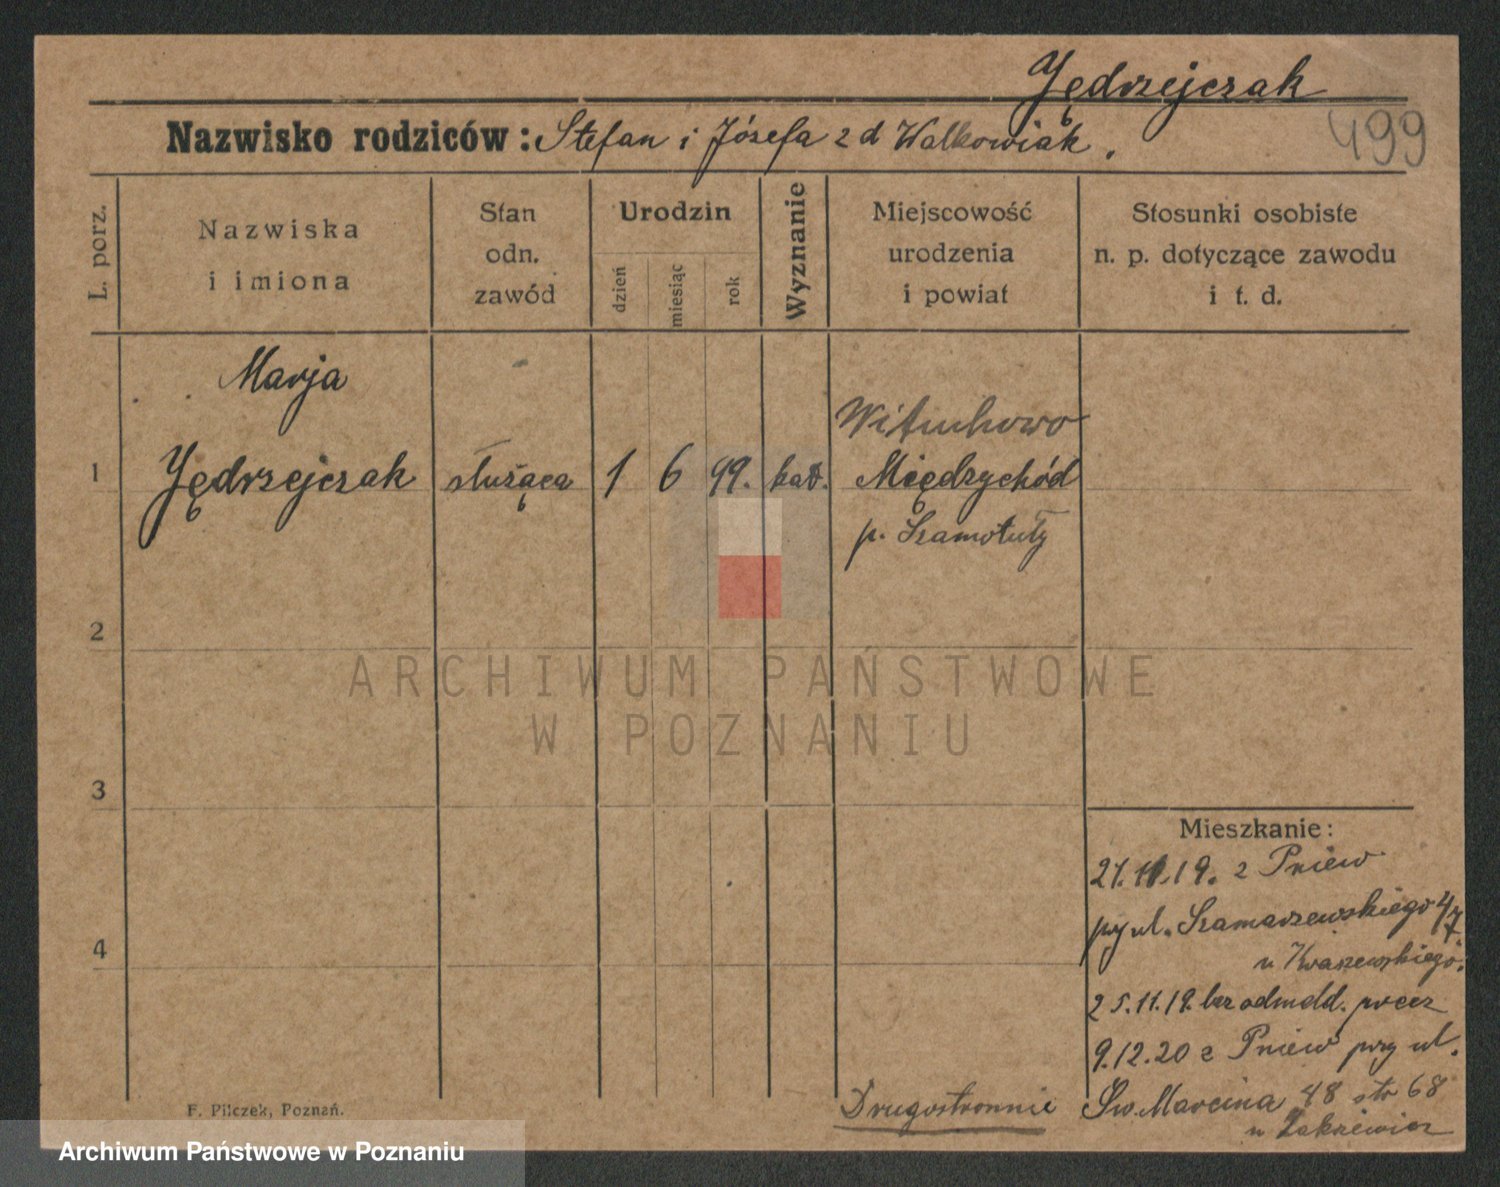 Jędrzejczak
499
Nazwisko rodziców: Stefan i Józefa z d Walkowiak.
L. porz.
Nazwiska
i imiona
Stan
odn.
zawód
Urodzin
dzień
miesiąc
rok
Wyznanie
Miejscowość
urodzenia
i powiat
Stosunki osobiste
n. p. dotyczące zawodu
i t. d.
Marja
Wituchowo
1 Jędrzejczak służąca 1 6 99. kat. Międzychód
p. Szamotuły
2
ARCHIWUM PAŃSTWOWE
W POZNANIU
3
4
Mieszkanie:
21.11.19. z Pniew
przy ul. Szamarzewskiego 4/7
u Kraszewskiego.
25.11.19. bez odmeld. precz
9.12.20 z Pniew przy ul.
Św. Marcina 48 str 68
u Zakrzewicz
Drugostronnie
F. Pilczek, Poznań.
Archiwum Państwowe w Poznaniu